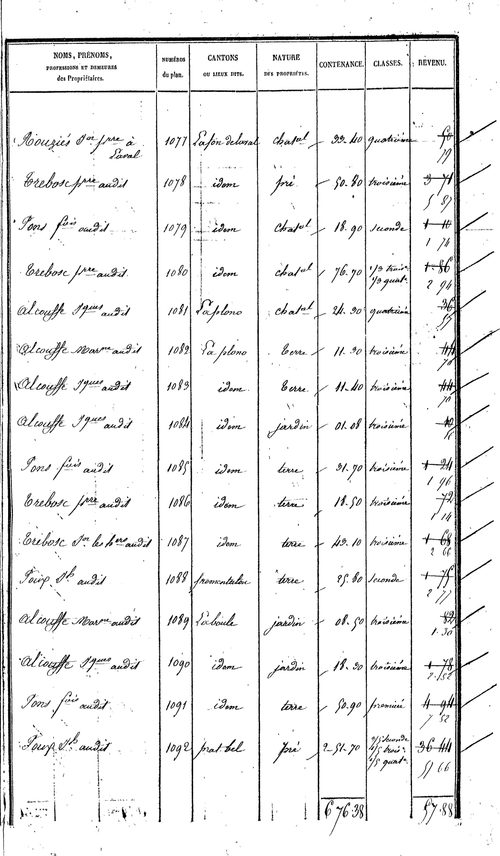 NOMS, PRÉNOMS, PROFESSIONS ET DEMEURES des Propriétaires. NUMÉROS du plan. CANTONS OU LIEUX DITS. NATURE DES PROPRIÉTÉS. CONTENANCE. CLASSES. REVENU.
Rouziés Jn prre à Laval 1077 Lafon delaval chatal 33.40 quatrième 50 79
Trebosc prre audit 1078 idem pré 50.80 troisième 3 71 5 87
Pons fois audit 1079 idem chatal 18.90 seconde 1 11 1 76
Trebosc prre audit 1080 idem chatal 76.70 1/3 trois 1/3 quat. 1.86 2 94
Alcouffe Jques audit 1081 La plono chatal 24.30 quatrième 36
Alcouffe Marne audit 1082 La plono terre 11.30 troisième 44 70
Alcouffe Jques audit 1083 idem terre 11.40 troisième 44 70
Alcouffe Jques audit 1084 idem jardin 01.08 troisième
Pons fois audit 1085 idem terre 31.70 troisième 1 24 1 96
Trebosc prre audit 1086 idem terre 18.50 troisième 72 1 14
Trebosc Jn les hers audit 1087 idem terre 43.10 troisième 1 68 2 66
audit 1088 terre 25.80 seconde 1 75 2 77
Alcouffe Marne audit 1089 Laboule jardin 08.50 troisième 82 1.30
Alcouffe Jques audit 1090 idem jardin 18.30 troisième 1 78
Pons fois audit 1091 idem terre 50.90 première 4 94 7 82
audit 1092 prat bel pré 2-51.70 seconde trois quat. 36 44 57 66
6 76.38 57.88